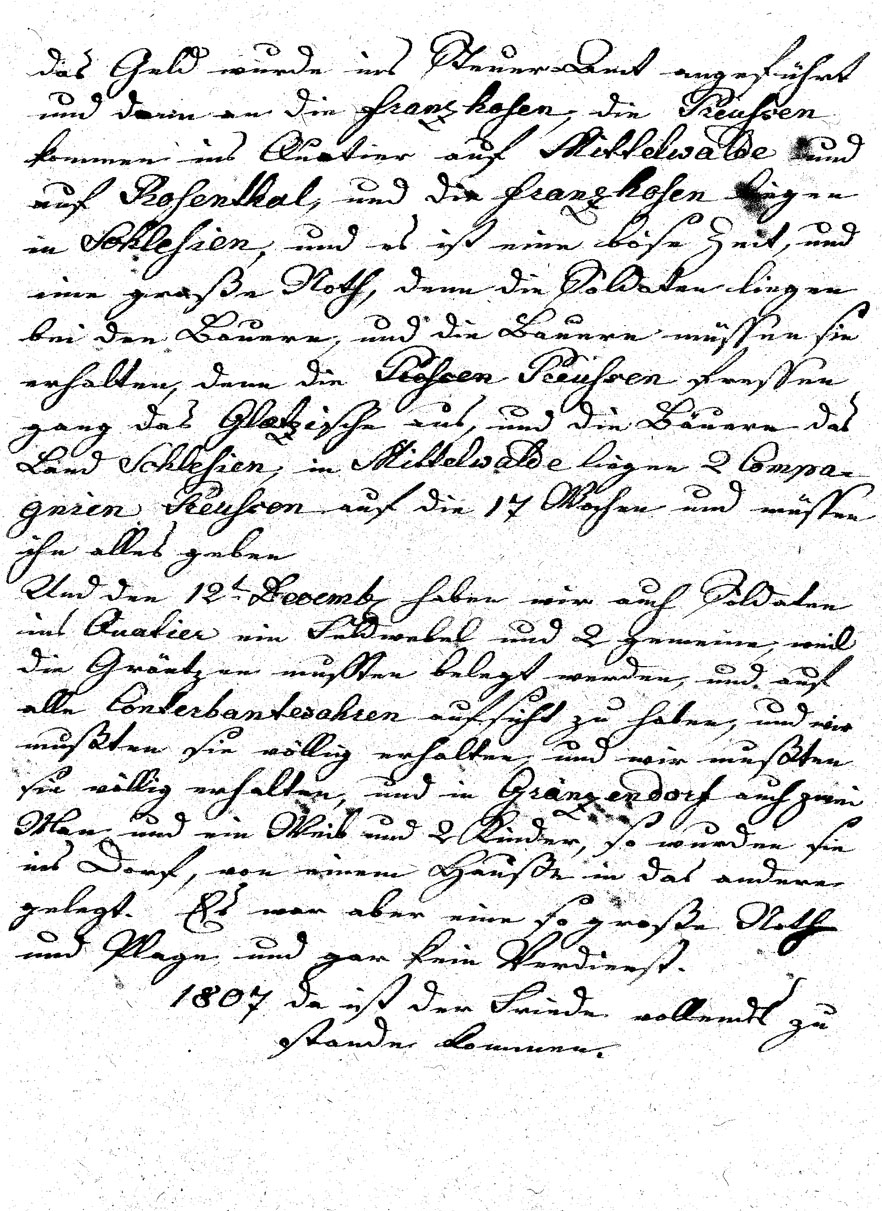 das Geld wurde ins Steuer-Amt angeführt
und dann an die Franzhosen, die Preussen
kommen ins Quatier auf Mittelwalde und
auf Rosenthal, und die Franzhosen liegen
in Schlesien, und es ist eine böse Zeit, und
eine große Noth, denn die Soldaten liegen
bei den Bauern, und die Bauern müssen sie
erhalten, denn die Preussen fressen
ganz das Glatzische aus, und die Bauern das
Land Schlesien, in Mittelwalde liegen 2 Compa-
gnien Preussen auf die 17 Wochen und müssen
ihn alles geben
Und den 12t Decemb haben wir auch Soldaten
ins Quatier ein Feldwebel und 2 gemeine, weil
die Gräntzen mussten belegt werden, und auf
alle Conterbantewahren aufsicht zu haben, und wir
mußten sie völlig erhalten, und wir mußten
sie völlig erhalten, und in Gränzendorf auch zwei
Man und ein Weib und 2 Kinder, so wurden sie
ins Dorf, von einem Hauße in das andere
gelegt. Es war aber eine so große Noth
und Plage und gar kein Verdienst.
1807 da ist der Friede vollends zu
stande kommen.